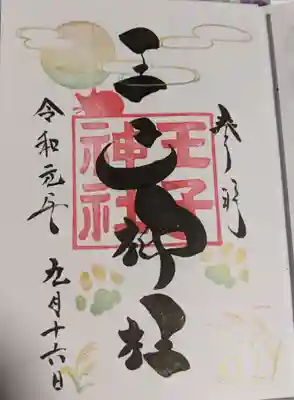 奉拝
王子神社
王子
神社
令和元年 九月十六日